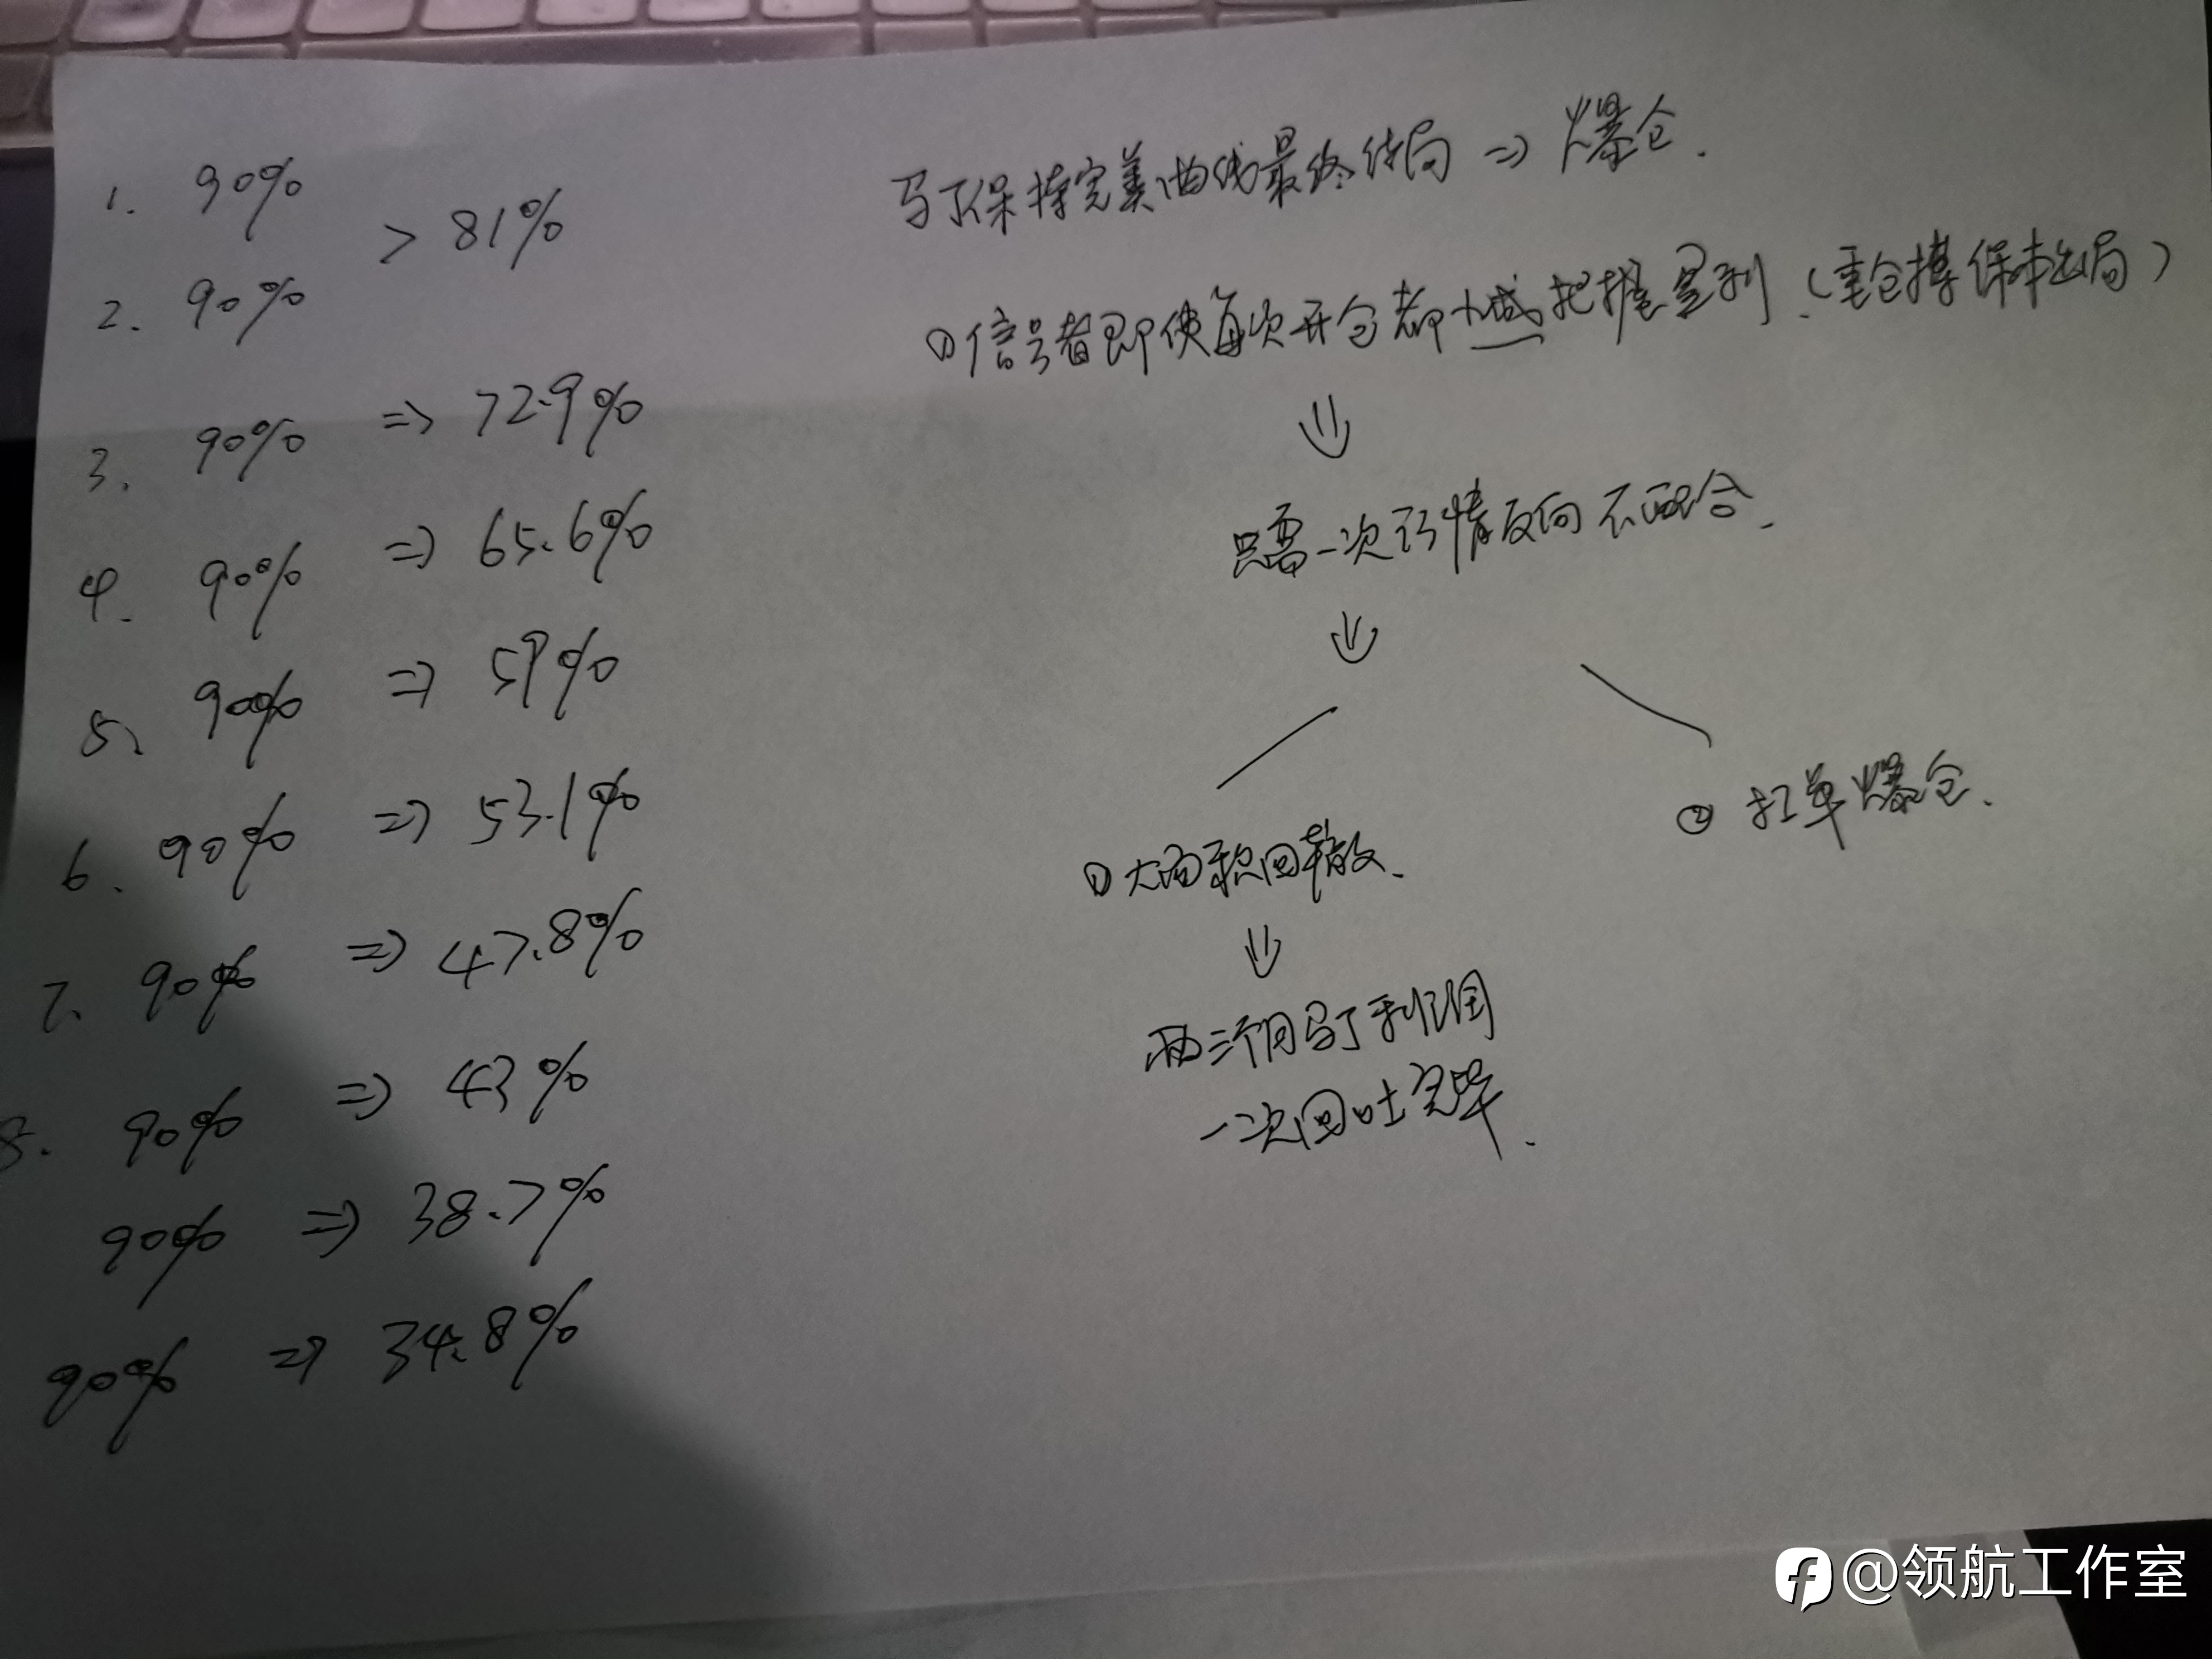 1. 90%
> 81%
2. 90%
3. 90% => 72.9%
4. 90% => 65.6%
5、 90% => 59%
6. 90% => 53.1%
7. 90% => 47.8%
8. 90% => 43%
90% => 38.7%
90% => 34.8%
为了保持完美曲线最终结局 => 爆仓.
① 信号者即使每次开仓都 把握盈利.(重仓搏保本出局)
⇓
只需一次行情反向不配合.
⇓
① 大面积回撤.
⇓
两三个月 了利润
一次回吐完毕.
② 扛单爆仓.
@领航工作室